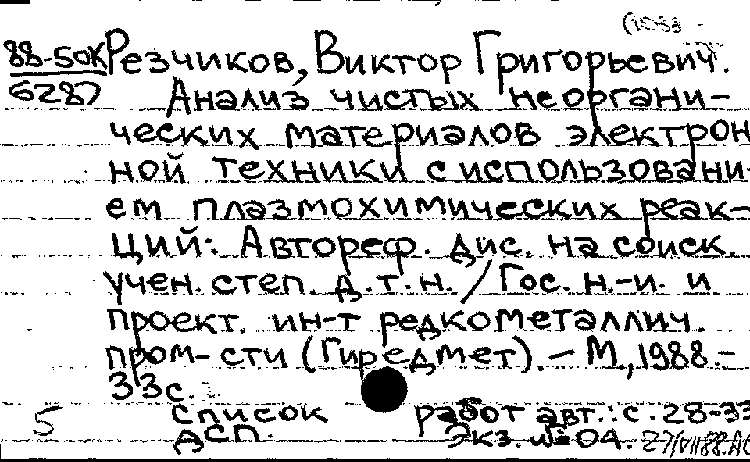 88-50К Резчиков, Виктор Григорьевич.
6287 Анализ чистых неоргани-
ческих материалов электрон
ной техники с использовани
ем плазмохимических реак-
ций: Автореф. дис. на соиск.
учен. степ. д.т.н. / Гос. н.-и. и
проект. ин-т редкометаллич.
пром-сти (Гиредмет). — М., 1988. —
33с.
5 список работ авт.: с. 28-33
ДСП. Экз. № 04.